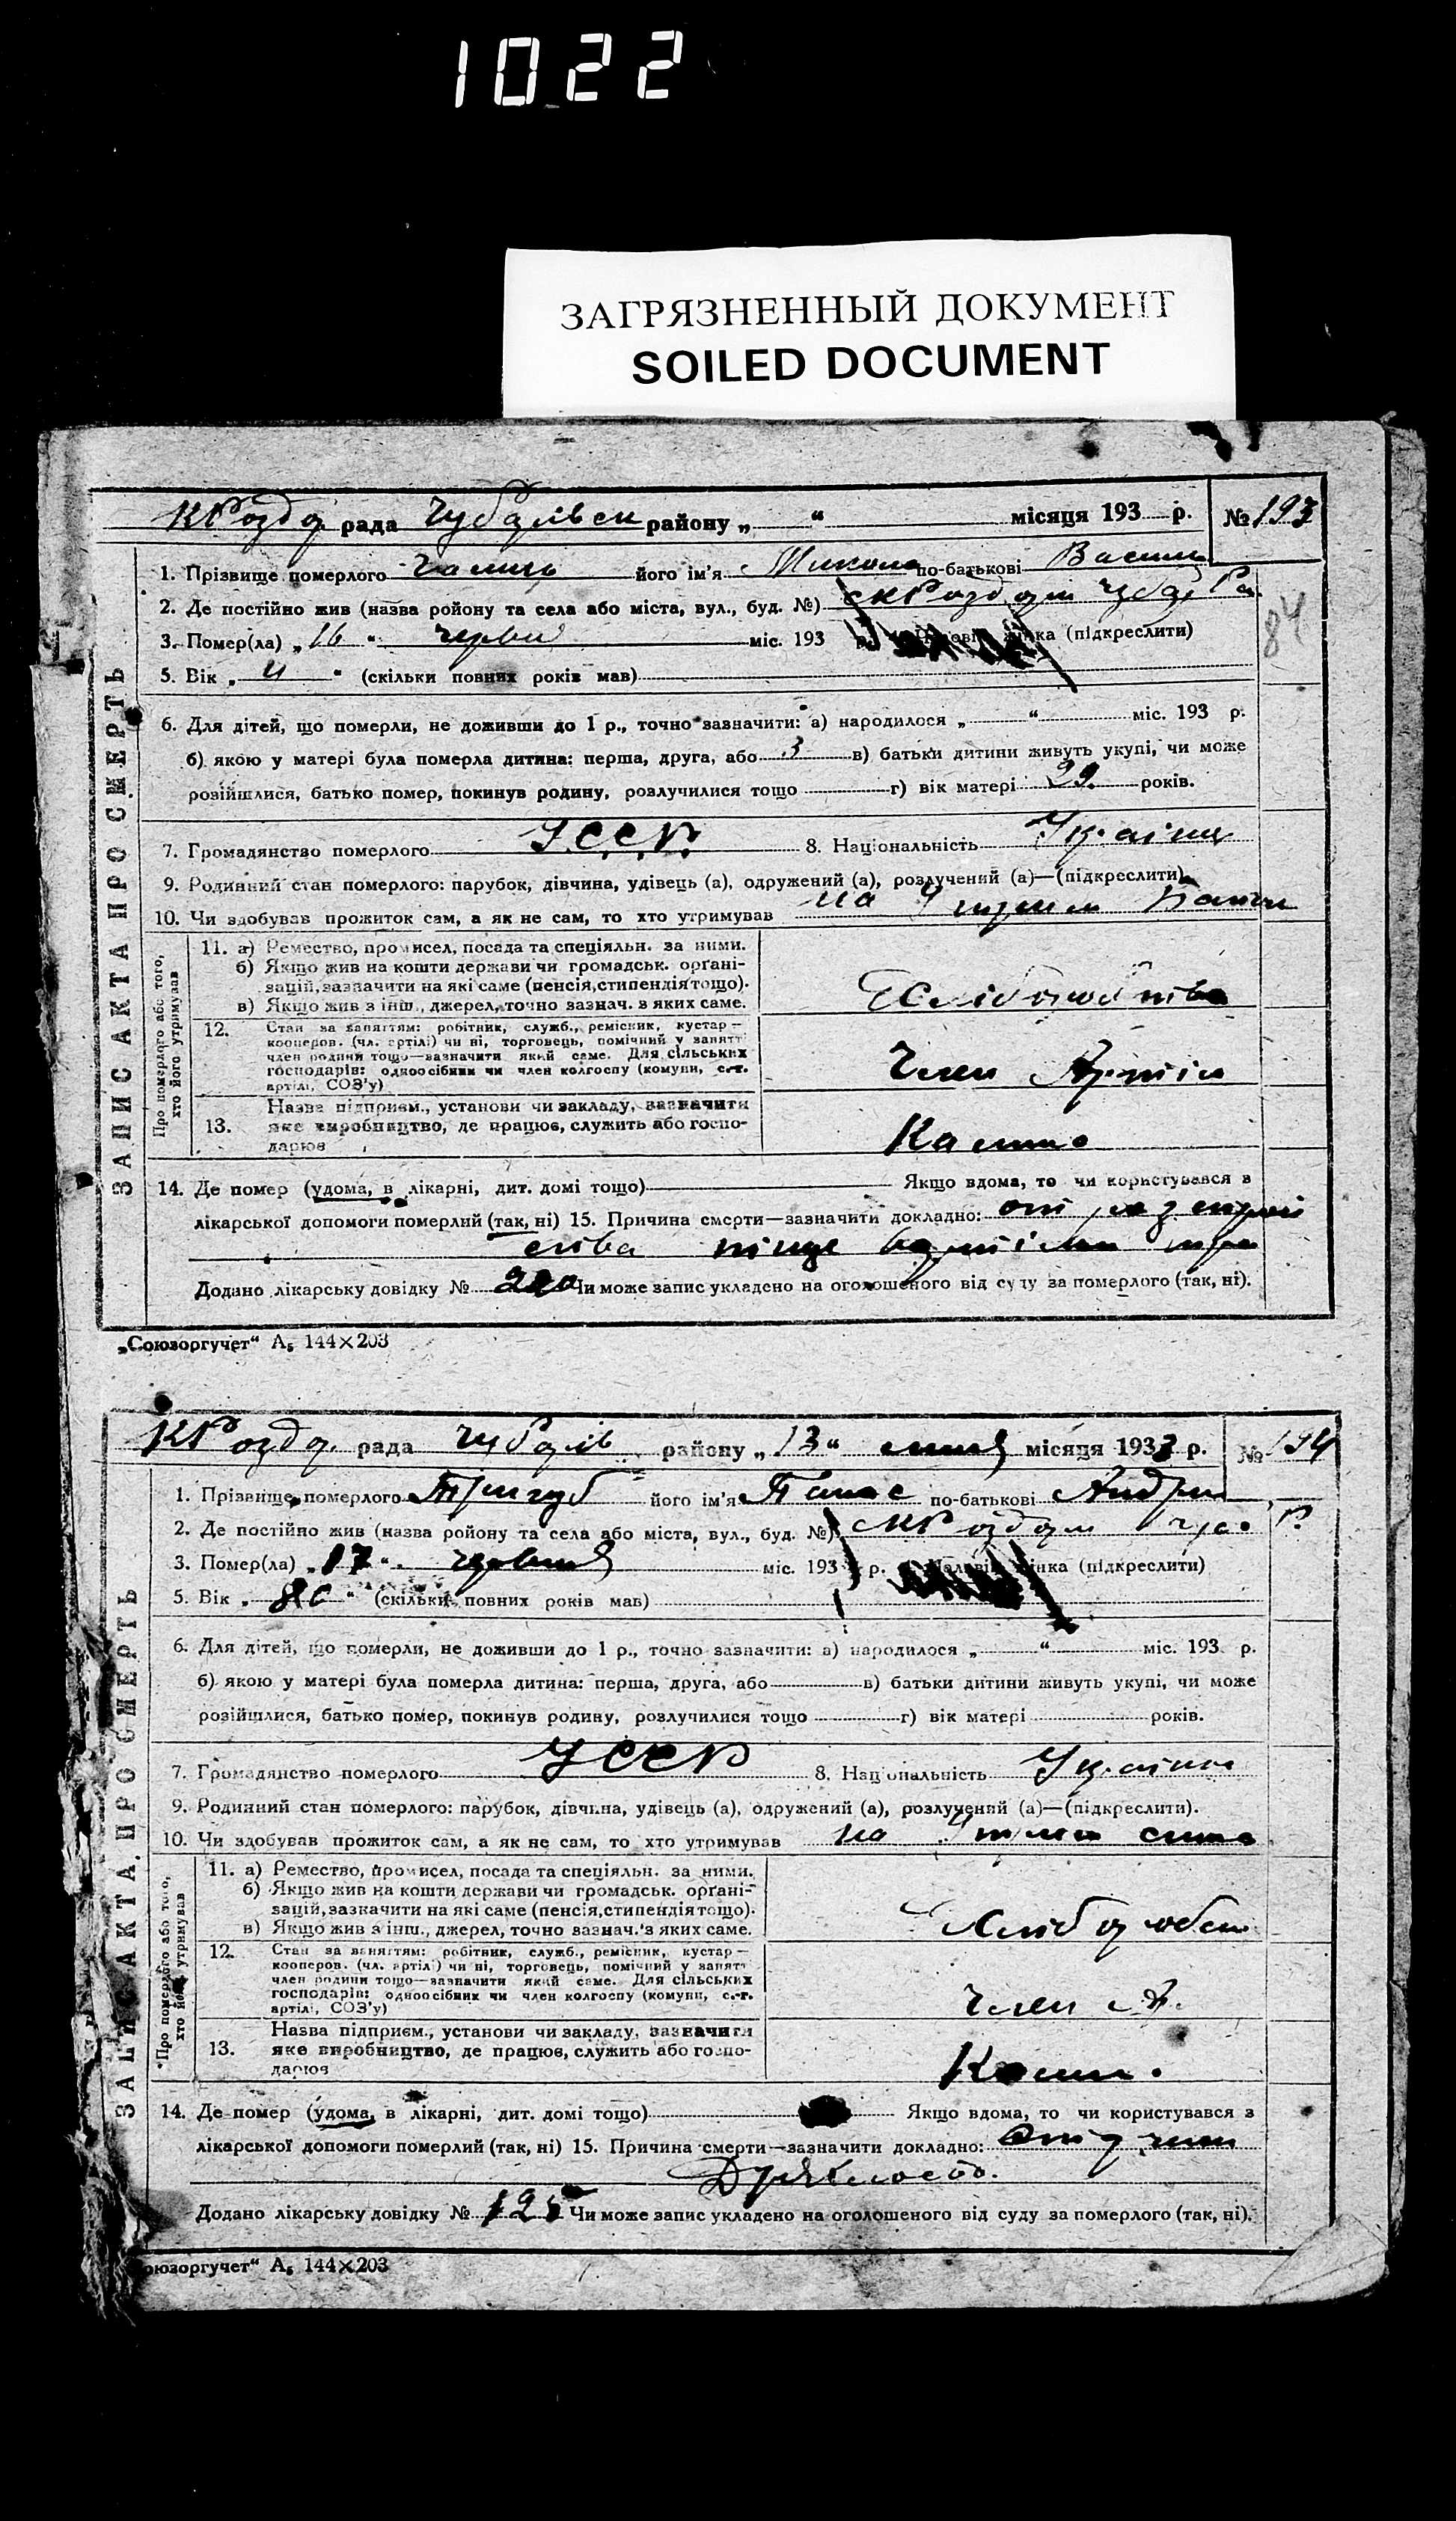 1022
ЗАГРЯЗНЕННЫЙ ДОКУМЕНТ
SOILED DOCUMENT
рада району „ “ місяця 193 р. № 193
ЗАПИС АКТА ПРО СМЕРТЬ
1. Прізвище померлого його ім'я Микола по-батькові Васил
2. Де постійно жив (назва ройону та села або міста, вул., буд. №)
84
3. Помер(ла) „ 16 “ черви міс. 193 р. жінка (підкреслити)
5. Вік „ 4 “ (скільки повних років мав)
6. Для дітей, що померли, не доживши до 1 р., точно зазначити: а) народилося „ “ міс. 193 р.
б) якою у матері була померла дитина: перша, друга, або 3 в) батьки дитини живуть укупі, чи може
розійшлися, батько помер, покинув родину, розлучилися тощо г) вік матері 29 років.
7. Громадянство померлого УССР 8. Національність Україн
9. Родинний стан померлого: парубок, дівчина, удівець (а), одружений (а), розлучений (а)—(підкреслити)
10. Чи здобував прожиток сам, а як не сам, то хто утримував на
Про померлого або того, хто його утримував
11. а) Ремество, промисел, посада та спеціяльн. за ними.
б) Якщо жив на кошти держави чи громадськ. орґані-
зацій, зазначити на які саме (пенсія, стипендія тощо).
в) Якщо жив з інш., джерел, точно зазнач. з яких саме.
12. Стан за заняттям: робітник, служб., ремісник, кустар—
кооперов. (чл. артілі) чи ні, торговець, помічний у занятт
член родини тощо—зазначити який саме. Для сільських
господарів: одноосібник чи член колгоспу (комуни, с.-г.
артілі, СОЗ'у)
Член Артіли
13. Назва підприєм., установи чи закладу, зазначити
яке виробництво, де працює, служить або госпо-
дарює
14. Де помер (удома, в лікарні, дит. домі тощо) Якщо вдома, то чи користувався з
лікарської допомоги померлий (так, ні) 15. Причина смерти—зазначити докладно: от
Додано лікарську довідку № Чи може запис укладено на оголошеного від суду за померлого (так, ні).
„Союзоргучет“ А₅ 144×203
рада району „ 13 “ місяця 1933 р. № 194
ЗАПИС АКТА ПРО СМЕРТЬ
1. Прізвище померлого Тригуб його ім'я Панас по-батькові Андри
2. Де постійно жив (назва ройону та села або міста, вул., буд. №)
3. Помер(ла) „ 17 “ червня міс. 193 р. жінка (підкреслити)
5. Вік „ 80 “ (скільки повних років мав)
6. Для дітей, що померли, не доживши до 1 р., точно зазначити: а) народилося „ “ міс. 193 р.
б) якою у матері була померла дитина: перша, друга, або в) батьки дитини живуть укупі, чи може
розійшлися, батько помер, покинув родину, розлучилися тощо г) вік матері років.
7. Громадянство померлого УССР 8. Національність Україн
9. Родинний стан померлого: парубок, дівчина, удівець (а), одружений (а), розлучений (а)—(підкреслити).
10. Чи здобував прожиток сам, а як не сам, то хто утримував на сина
Про померлого або того, хто його утримував
11. а) Ремество, промисел, посада та спеціяльн. за ними.
б) Якщо жив на кошти держави чи громадськ. орґані-
зацій, зазначити на які саме (пенсія, стипендія тощо).
в) Якщо жив з інш., джерел, точно зазнач. з яких саме.
12. Стан за заняттям: робітник, служб., ремісник, кустар—
кооперов. (чл. артілі) чи ні, торговець, помічний у занятт
член родини тощо—зазначити який саме. Для сільських
господарів: одноосібник чи член колгоспу (комуни, с.-г.
артілі, СОЗ'у)
Член А.
13. Назва підприєм., установи чи закладу, зазначити
яке виробництво, де працює, служить або госпо-
дарює
14. Де помер (удома, в лікарні, дит. домі тощо) Якщо вдома, то чи користувався з
лікарської допомоги померлий (так, ні) 15. Причина смерти—зазначити докладно:
Додано лікарську довідку № 125 Чи може запис укладено на оголошеного від суду за померлого (так, ні).
юзоргучет“ А₅ 144×203